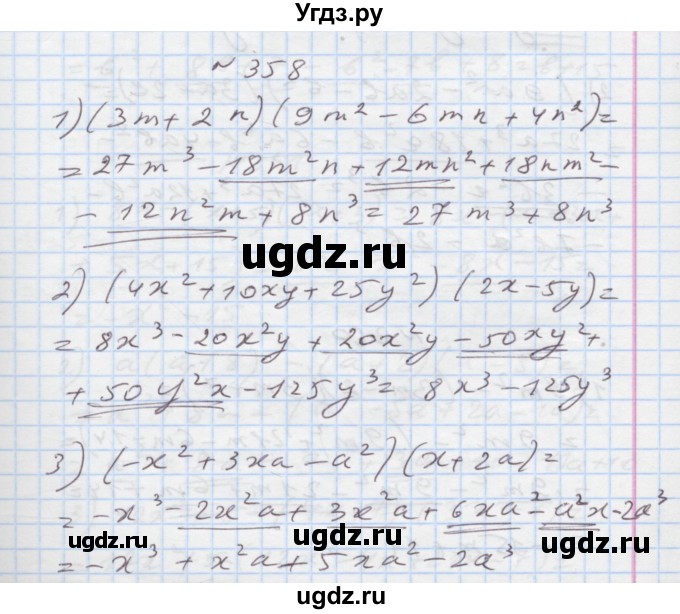 Угдз.ру
№ 358
1) (3m + 2n)(9m² - 6mn + 4n²) =
= 27m³ - 18m²n + 12mn² + 18nm² -
- 12n²m + 8n³ = 27m³ + 8n³
ugdz.ru
2) (4x² + 10xy + 25y²)(2x - 5y) =
= 8x³ - 20x²y + 20x²y - 50xy² +
+ 50y²x - 125y³ = 8x³ - 125y³
ugdz.ru
3) (-x² + 3xa - a²)(x + 2a) =
= -x³ - 2x²a + 3x²a + 6xa² - a²x - 2a³
ugdz.ru ugdz.ru
= -x³ + x²a + 5xa² - 2a³
ugdz.ru